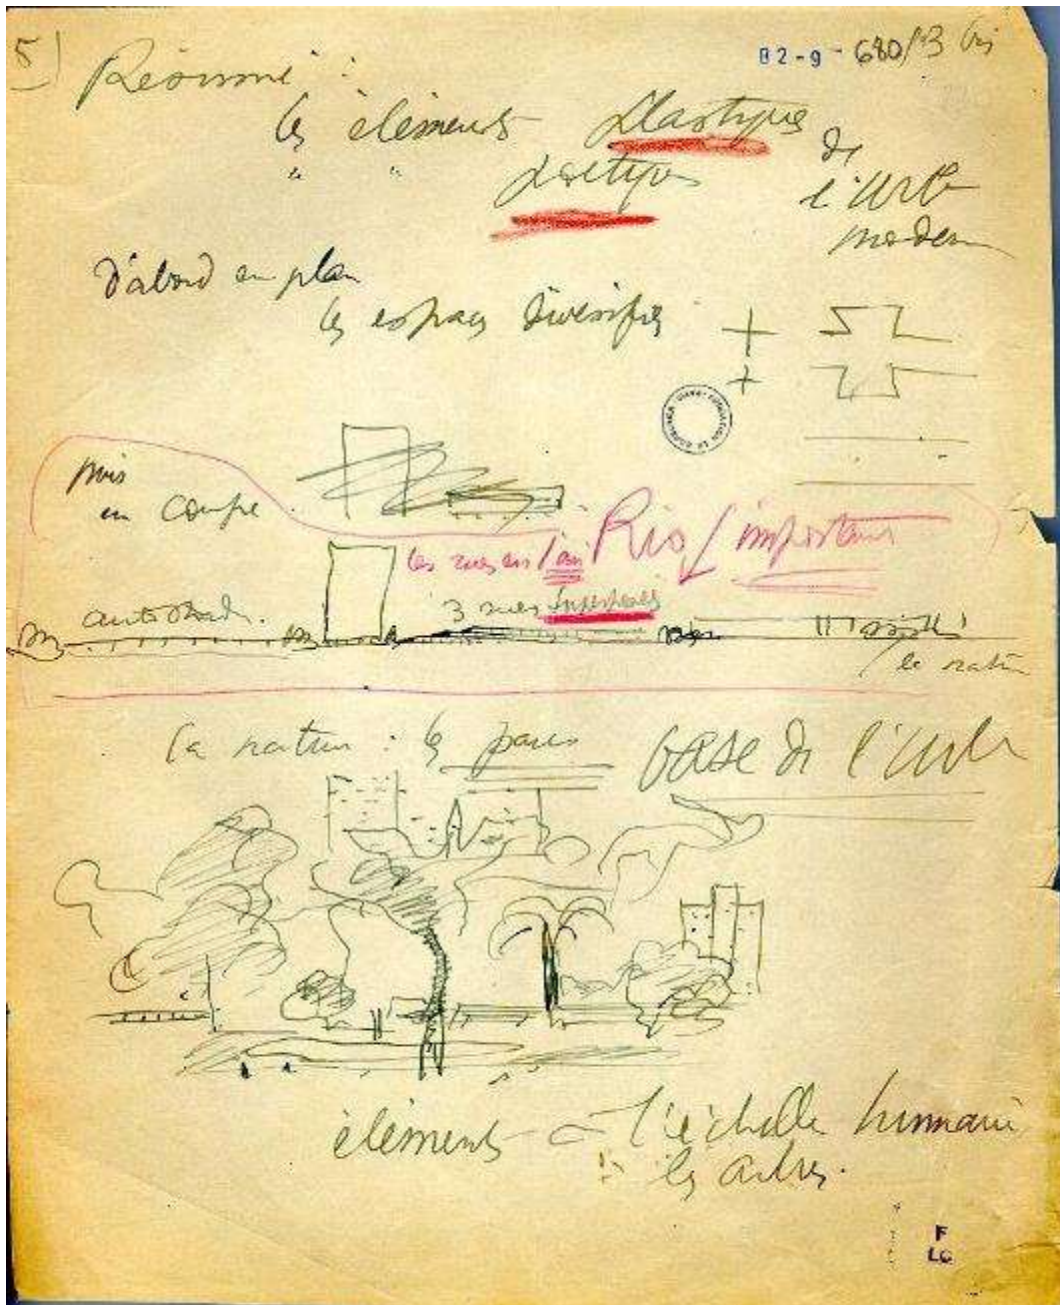 5)
B2-9-680/13 bis
Résumé :
les éléments plastiques
" " poétiques
de
l'Urb
moderne
d'abord en plan
les espaces diversifiés
puis
en coupe
Rio / important
les rues en l'air
3 rues superposées
autostrade.
la nature
la nature : les parcs base de l'Urb
éléments à l'échelle humaine
: les arbres.
F
LC